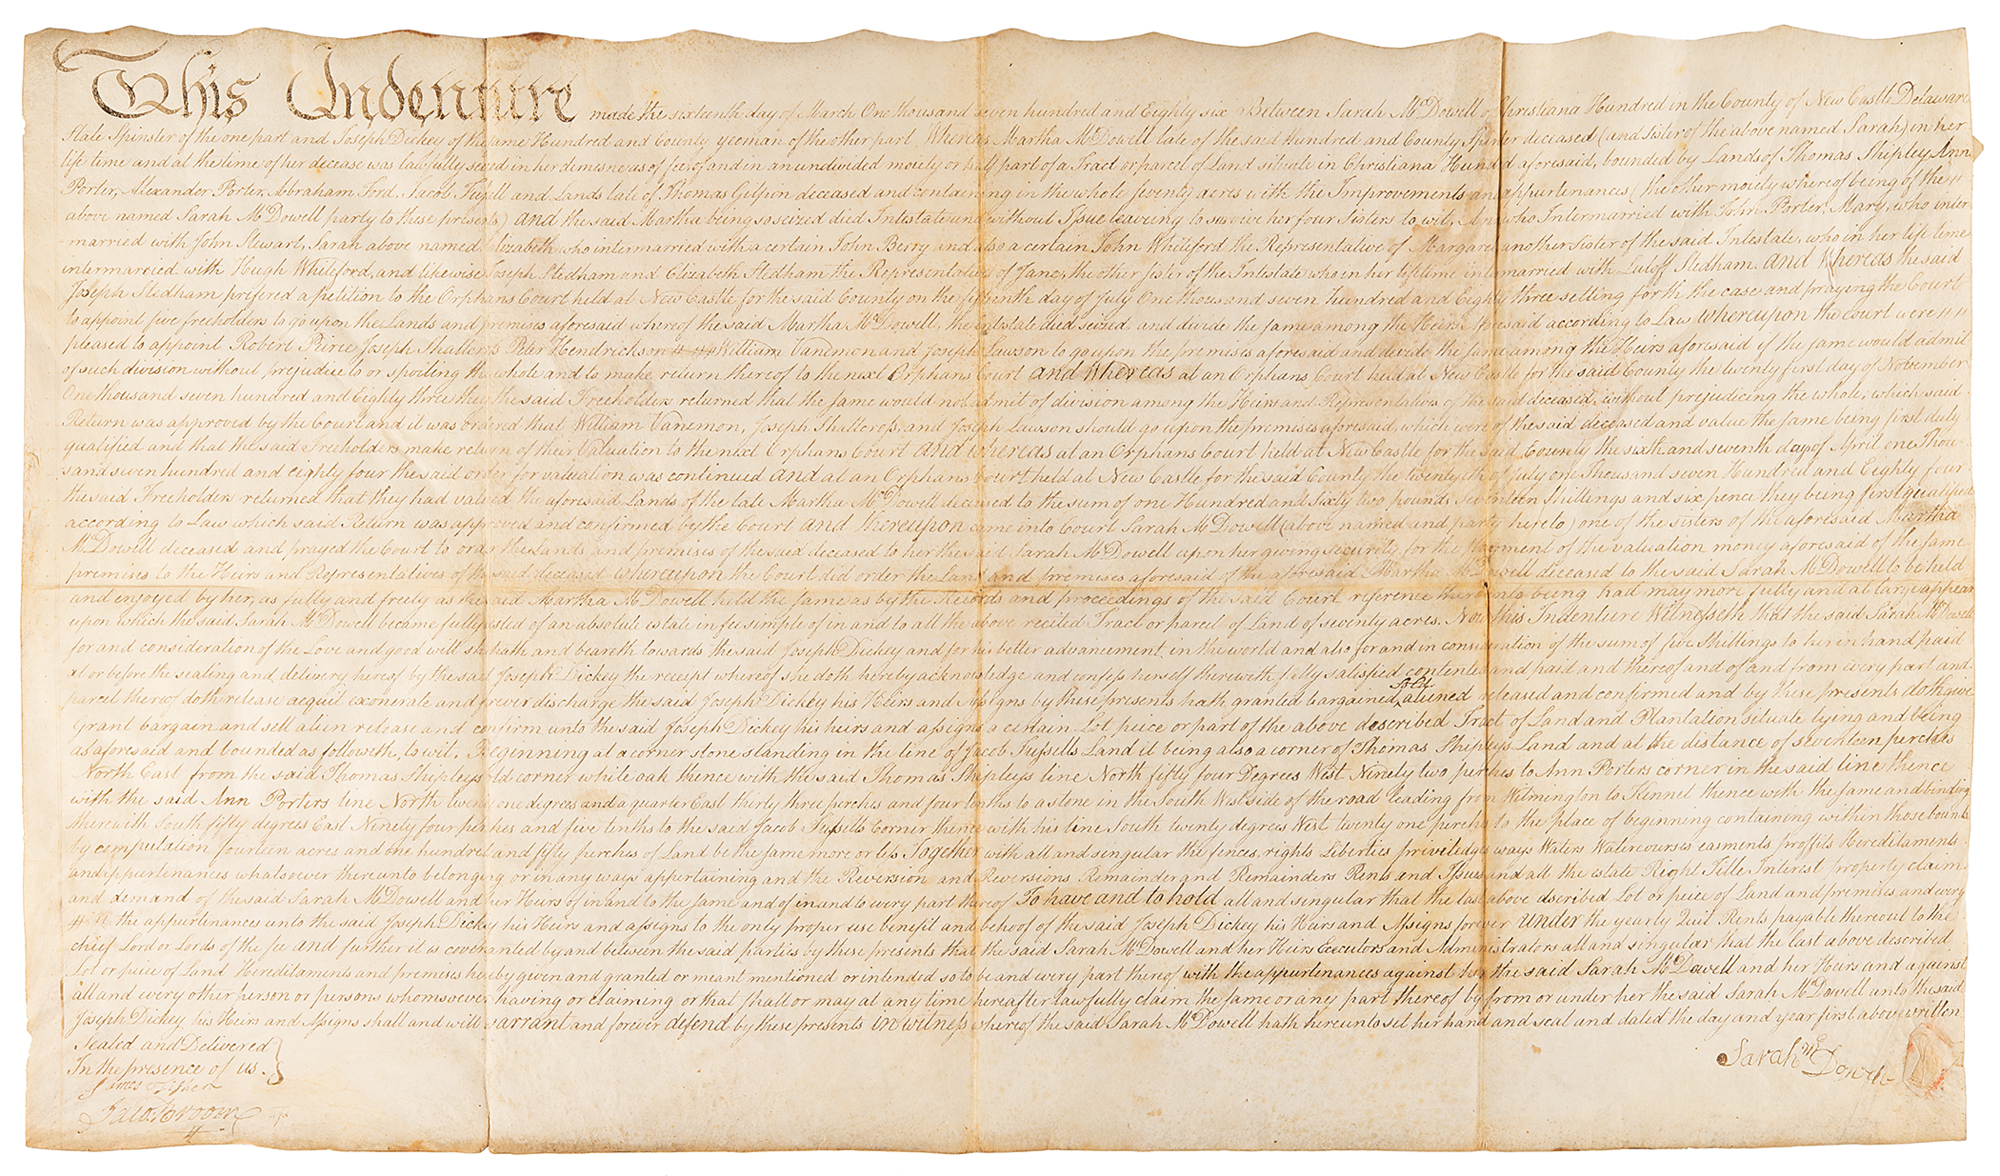 This Indenture made the sixteenth day of March One thousand seven hundred and Eighty six Between Sarah McDowell of Christiana Hundred in the County of New Castle Delaware
State Spinster of the one part and Joseph Dickey of the same Hundred and County yeoman of the other part Whereas Martha McDowell late of the said Hundred and County Spinster deceased (and Sister of the above named Sarah) in her
life time and at the time of her decease was lawfully seized in her demesne as of fee of and in an undivided moiety or half part of a Tract or parcel of Land situate in Christiana Hundred aforesaid, bounded by Lands of Thomas Shipley Ann
Porter, Alexander Porter, Abraham Ford, Jacob and Lands late of Thomas Gilpin deceased and containing in the whole Seventy acres with the Improvements and appurtenances (the other moiety whereof being of the
above named Sarah McDowell party to these presents) and the said Martha being so seized died Intestate and without Issue leaving to survive her four Sisters to wit, Ann who Intermarried with John Porter, Mary, who inter-
-married with John Stewart, Sarah above named, Elizabeth who intermarried with a certain John Berry and also a certain John Whiteford the Representative of Margaret another Sister of the said Intestate, who in her life time
intermarried with Hugh Whiteford, and likewise Joseph Stedham and Elizabeth Stedham the Representatives of Jane, the other Sister of the Intestate who in her lifetime intermarried with Luloff Stedham. and Whereas the said
Joseph Stedham prefered a petition to the Orphans Court held at New Castle for the said County on the fifteenth day of July One thousand seven hundred and Eighty three setting forth the case and praying the Court
to appoint five freeholders to go upon the Lands and premises aforesaid whereof the said Martha McDowell, the intestate died seized and divide the same among the Heirs aforesaid according to Law whereupon the Court were
pleased to appoint Robert Peirce Joseph Shallcross Peter Hendrickson William Vanemon and Joseph Lawson to go upon the premises aforesaid and divide the same among the Heirs aforesaid if the same would admit
of such division without prejudice to or spoiling the whole and to make return thereof to the next Orphans Court and Whereas at an Orphans Court held at New Castle for the said County the twenty first day of November
One thousand seven hundred and Eighty three they the said Freeholders returned that the same would not admit of division among the Heirs and Representatives of the said deceased, without prejudicing the whole, which said
Return was approved by the Court and it was ordered that William Vanemon, Joseph Shallcross, and Joseph Lawson should go upon the premises aforesaid, which were of the said deceased and value the same being first duly
qualified and that the said Freeholders make return of their Valuation to the next Orphans Court and whereas at an Orphans Court held at New Castle for the said County the sixth and seventh day of April one Thou-
sand seven hundred and eighty four the said order for valuation was continued and at an Orphans Court held at New Castle for the said County the of July one Thousand seven Hundred and Eighty four
the said Freeholders returned that they had valued the aforesaid Lands of the late Martha McDowell deceased to the sum of one Hundred and Sixty two pounds, Seventeen Shillings and six pence they being first qualified
according to Law which said Return was approved and confirmed by the Court and thereupon came into Court Sarah McDowell (above named and party hereto) one of the sisters of the aforesaid Martha
McDowell deceased and prayed the Court to order the Lands and premises of the said deceased to her the said Sarah McDowell upon her giving security for the payment of the valuation money aforesaid of the same
premises to the Heirs and Representatives of the said deceased whereupon the Court did order the Land and premises aforesaid of the aforesaid Martha McDowell deceased to the said Sarah McDowell to be held
and enjoyed by her, as fully and freely as the said Martha McDowell held the same as by the Records and proceedings of the said Court reference thereunto being had may more fully and at large appear
upon which the said Sarah McDowell became fully of an absolute estate in fee simple of in and to all the above recited Tract or parcel of Land of seventy acres. Now this Indenture Witnesseth that the said Sarah McDowell
for and consideration of the Love and good will she hath and beareth towards the said Joseph Dickey and for his better advancement in the world and also for and in consideration of the sum of five Shillings to her in hand paid
at or before the sealing and delivery hereof by the said Joseph Dickey the receipt whereof she doth hereby acknowledge and confess herself therewith fully satisfied contented and paid and thereof and of and from every part and
parcel thereof doth release acquit exonerate and forever discharge the said Joseph Dickey his Heirs and Assigns by these presents hath granted bargained sold aliened released and confirmed and by these presents doth give
Grant bargain and sell alien release and confirm unto the said Joseph Dickey his heirs and assigns a certain Lot peice or part of the above described Tract of Land and Plantation situate lying and being
as aforesaid and bounded as followeth, to wit, Beginning at a corner stone standing in the line of Jacob Land it being also a corner of Thomas Shipleys Land and at the distance of seventeen perches
North East from the said Thomas Shipleys old corner white oak thence with the said Thomas Shipleys line North fifty four Degrees West Ninety two perches to Ann Porters corner in the said line thence
with the said Ann Porters line North twenty one degrees and a quarter East thirty three perches and four tenths to a stone in the South West side of the road leading from Wilmington to Kennet thence with the same and binding
therewith South fifty degrees East Ninety four perches and five tenths to the said Jacob Corner thence with his line South twenty degrees West twenty one perches to the place of beginning containing within those bounds
by computation fourteen acres and one hundred and fifty perches of Land be the same more or less Together with all and singular the fences, rights Liberties priviledges ways Waters Watercourses easments proffits Hereditaments
and appurtenances whatsoever thereunto belonging or in any ways appertaining and the Reversion and Reversions Remainder and Remainders Rents and Issues and all the estate Right Title Interest property claim
and demand of the said Sarah McDowell and her Heirs of in and to the same and of in and to every part thereof To have and to hold all and singular that the last above dscribed Lot or peice of Land and premises and every
the appurtenances unto the said Joseph Dickey his Heirs and assigns to the only proper use benefit and behoof of the said Joseph Dickey his Heirs and Assigns forever under the yearly Quit Rents payable thereout to the
chief Lord or Lords of the fee and further it is covenanted by and between the said parties by these presents that the said Sarah McDowell and her Heirs Executors and Administrators all and singular that the last above described
Lot or peice of Land Hereditaments and premises hereby given and granted or meant mentioned or intended so to be and every part thereof with the appurtenances against her the said Sarah McDowell and her Heirs and against
all and every other person or persons whomsoever having or claiming or that shall or may at any time hereafter lawfully claim the same or any part thereof by from or under her the said Sarah McDowell unto the said
Joseph Dickey his Heirs and Assigns shall and will warrant and forever defend by these presents in witness whereof the said Sarah McDowell hath hereunto set her hand and seal and dated the day and year first above written
Sealed and Delivered
In the presence of us
Sarah McDowell
Jacob Broom